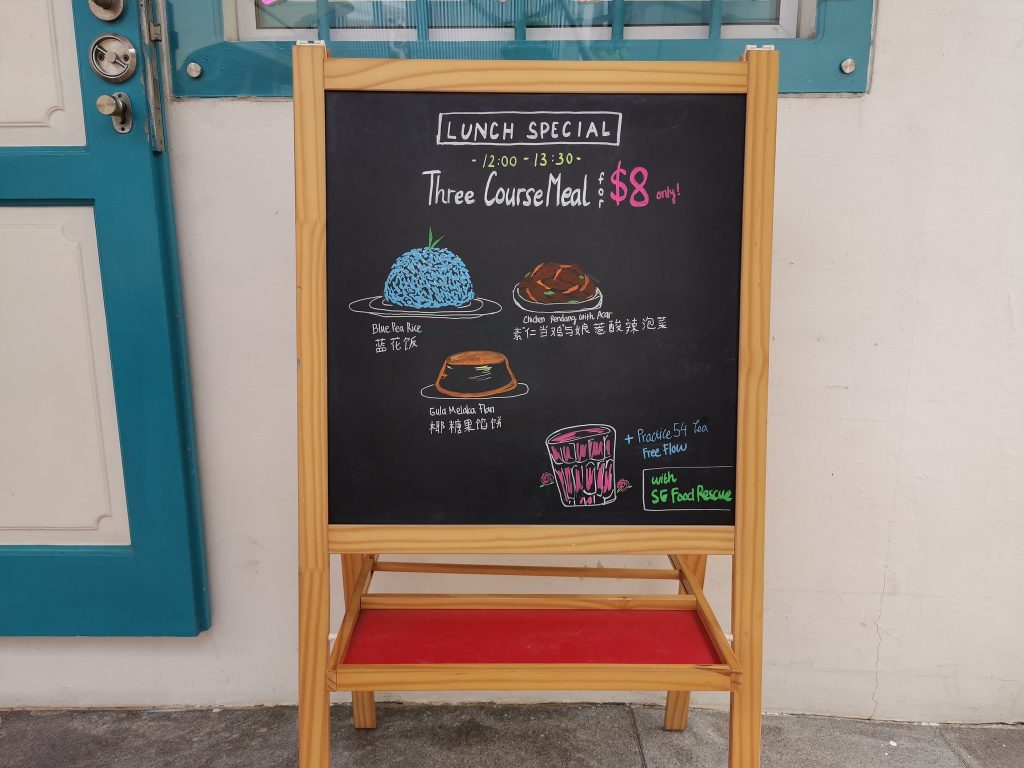 LUNCH SPECIAL
- 12:00 - 13:30 -
Three Course Meal for $8 only!
Blue Pea Rice
蓝花饭
Chicken Rendang with Acar
素仁当鸡与娘惹酸辣泡菜
Gula Melaka Flan
椰糖果馅饼
+ Practice 54 Tea
Free Flow
with
SG Food Rescue